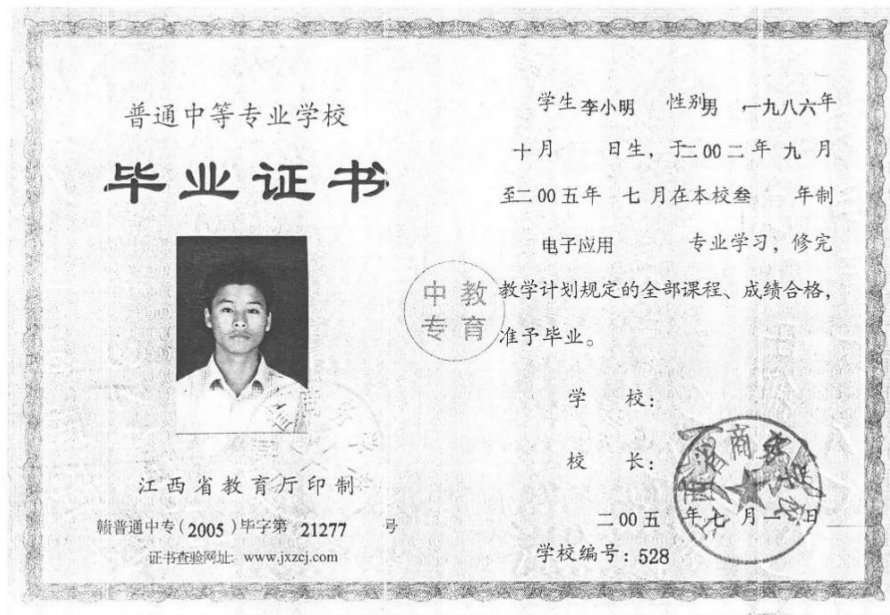 普通中等专业学校
毕业证书
江西省教育厅印制
赣普通中专(2005)毕字第 21277 号
证书查验网址: www.jxzcj.com
中教
专育
学生李小明 性别男 一九八六年
十月 日生,于二00二年 九 月
至二00五年 七 月在本校叁 年制
电子应用 专业学习,修完
教学计划规定的全部课程、成绩合格,
准予毕业。
学 校:
校 长:
二00五 年七 月一 日
学校编号:528